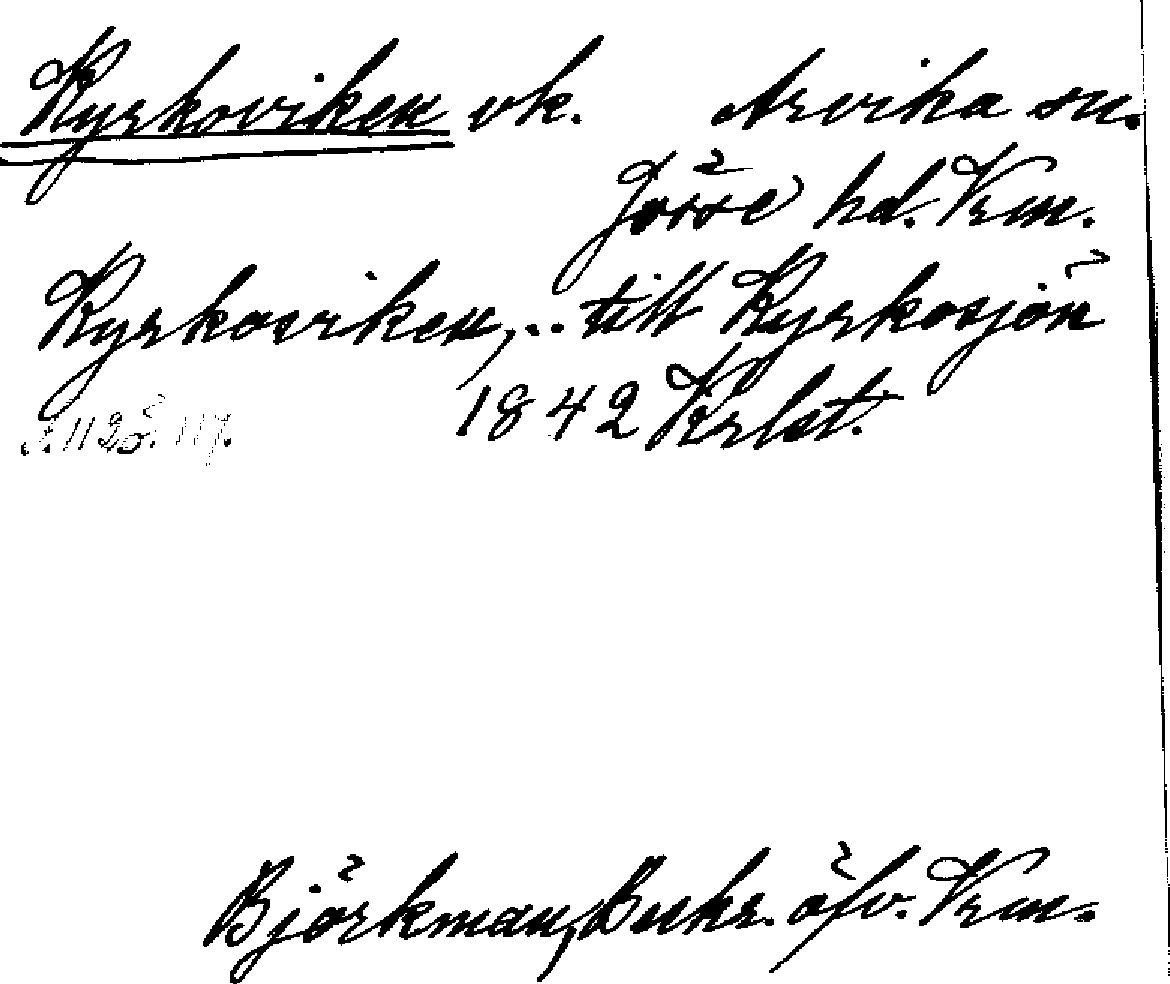 Kyrkoviken vk. Arvika sn.
Jösse hd. Vrm.
Kyrkoviken, .. till Kyrkosjön
1842 Krlst.
Björkman, Beskr. öfv. Vrm.